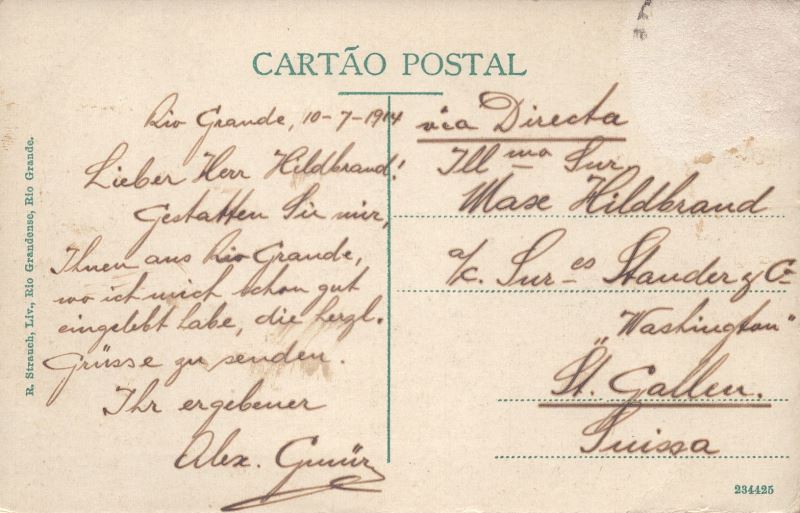 CARTÃO POSTAL
Rio Grande, 10-7-1914
Lieber Herr Hildbrand!
Gestatten Sie mir,
Ihnen aus Rio Grande,
wo ich mich schon gut
eingelebt habe, die herzl.
Grüsse zu senden.
Ihr ergebener
Alex. Gmür
via Directa
Ill mo Snr.
Max Hildbrand
a/c. Snr es Stauder & Co
"Washington"
St. Gallen.
Suissa
R. Strauch, Liv., Rio Grandense, Rio Grande.
234425